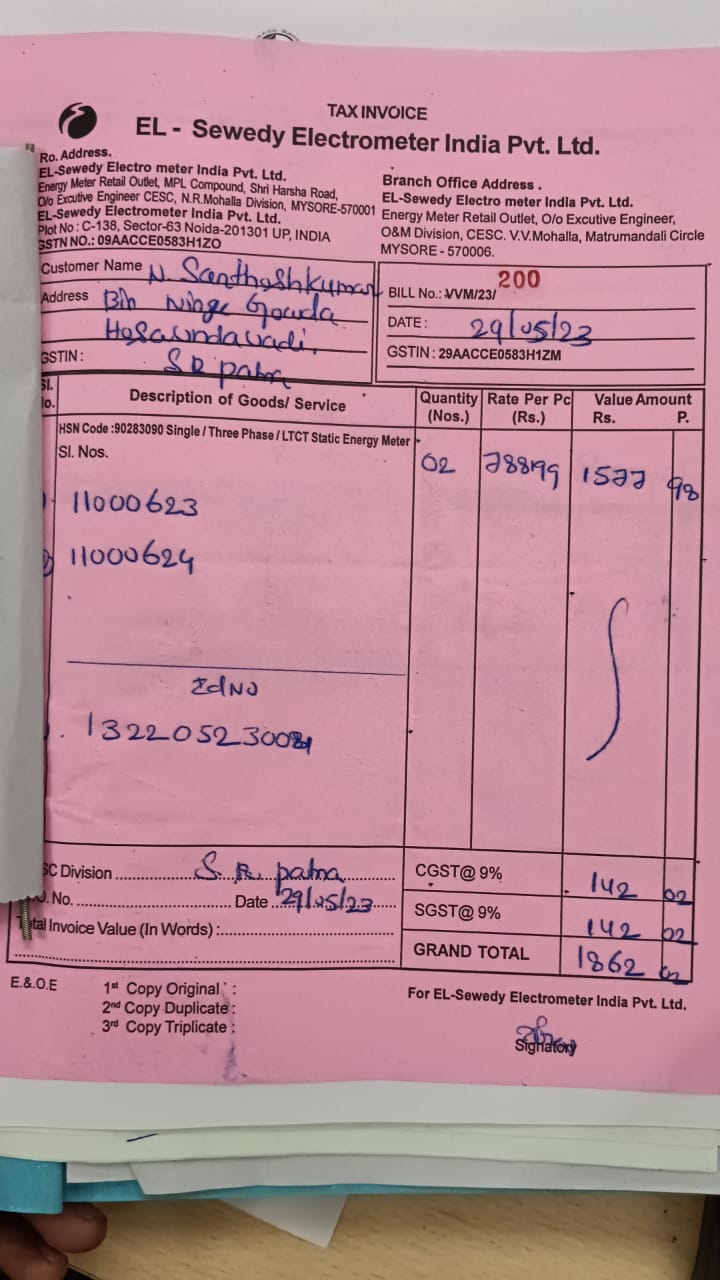 TAX INVOICE
EL - Sewedy Electrometer India Pvt. Ltd.
Ro. Address.
EL-Sewedy Electro meter India Pvt. Ltd.
Energy Meter Retail Outlet, MPL Compound, Shri Harsha Road,
O/o Excutive Engineer CESC, N.R.Mohalla Division, MYSORE-570001
EL-Sewedy Electrometer India Pvt. Ltd.
Plot No : C-138, Sector-63 Noida-201301 UP, INDIA
GSTN NO.: 09AACCE0583H1ZO
Branch Office Address .
EL-Sewedy Electro meter India Pvt. Ltd.
Energy Meter Retail Outlet, O/o Excutive Engineer,
O&M Division, CESC. V.V.Mohalla, Matrumandali Circle
MYSORE - 570006.
Customer Name N. Santhoshkumar
Address Bin Ninge Gowda
GSTIN : S R patna
BILL No.: VVM/23/ 200
DATE : 29/05/23
GSTIN : 29AACCE0583H1ZM
Sl. No. Description of Goods/ Service Quantity (Nos.) Rate Per Pc (Rs.) Value Amount Rs. P.
HSN Code :90283090 Single / Three Phase / LTCT Static Energy Meter
Sl. Nos.
02 788.99 1577 98
11000623
2) 11000624
SC Division S. R. patna
O. No. Date 29/05/23
Total Invoice Value (In Words) :
CGST@ 9% 142 02
SGST@ 9% 142 02
GRAND TOTAL 1862 02
E.&.O.E
1st Copy Original :
2nd Copy Duplicate :
3rd Copy Triplicate :
For EL-Sewedy Electrometer India Pvt. Ltd.
Signatory